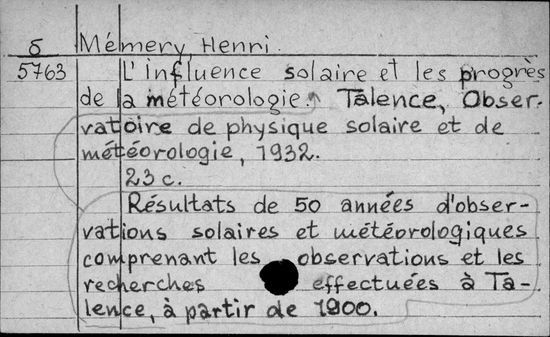 б Mémery, Henri.
5763 L'influence solaire et les progrès
de la météorologie. Talence, Obser-
vatoire de physique solaire et de
météorologie, 1932.
23 c.
Résultats de 50 années d'obser-
vations solaires et météorologiques
comprenant les observations et les
recherches effectuées à Ta-
lence, à partir de 1900.